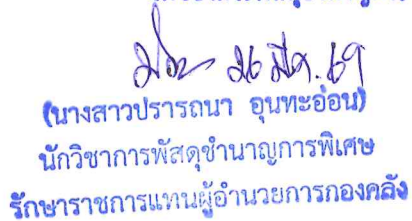 26 มี.ค. 69
(นางสาวปรารถนา อุนทะอ่อน)
นักวิชาการพัสดุชำนาญการพิเศษ
รักษาราชการแทนผู้อำนวยการกองคลัง